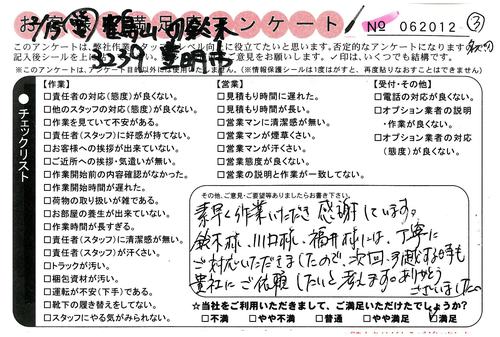 お客様満足度アンケート
№ 062012 ③
鶴山
3239 豊明市
このアンケートは、弊社作業スタッフのレベル向上に役立てたいと思います。否定的なアンケートになりますが
記入後シールを上
意見をお願いします。✓印は、いくつでも結構です。
※このアンケートは、アンケート目的以外には使用いたしません。（※情報保護シールは1度はがすと、再度貼りなおすことはできません）
チェックリスト
【作業】
□責任者の対応(態度)が良くない。
□他のスタッフの対応(態度)が良くない。
□作業を見ていて不安がある。
□責任者(スタッフ)に好感が持てない。
□お客様への挨拶が出来ていない。
□ご近所への挨拶・気遣いが無い。
□作業開始前の内容確認がなかった。
□作業開始時間が遅れた。
□荷物の取り扱いが雑である。
□お部屋の養生が出来ていない。
□作業時間が長すぎる。
□責任者(スタッフ)に清潔感が無い。
□責任者(スタッフ)が汗くさい。
□トラックが汚い。
□梱包資材が汚い。
□運転が不安(下手)である。
□靴下の履き替えをしてない。
□スタッフにやる気がみられない。
【営業】
□見積もり時間に遅れた。
□見積もり時間が長い。
□営業マンに清潔感が無い。
□営業マンが煙草くさい。
□営業マンが汗くさい。
□営業態度が良くない。
□営業の説明と作業が一致してない。
【受付・その他】
□電話の対応が良くない。
□オプション業者の説明
・作業が良くない。
□オプション業者の対応
(態度)が良くない。
その他、ご意見・ご要望等ありましたらお書き下さい。
素早く作業いただき感謝しています。
鈴木様、川口様、福井様には、丁寧に
ご対応いただきましたので、次回、引越する時も
貴社にご依頼したいと考えます。ありがとう
ございました。
★当社をご利用いただきまして、ご満足いただけたでしょうか？
□不満 □やや不満 □普通 □やや満足 □満足